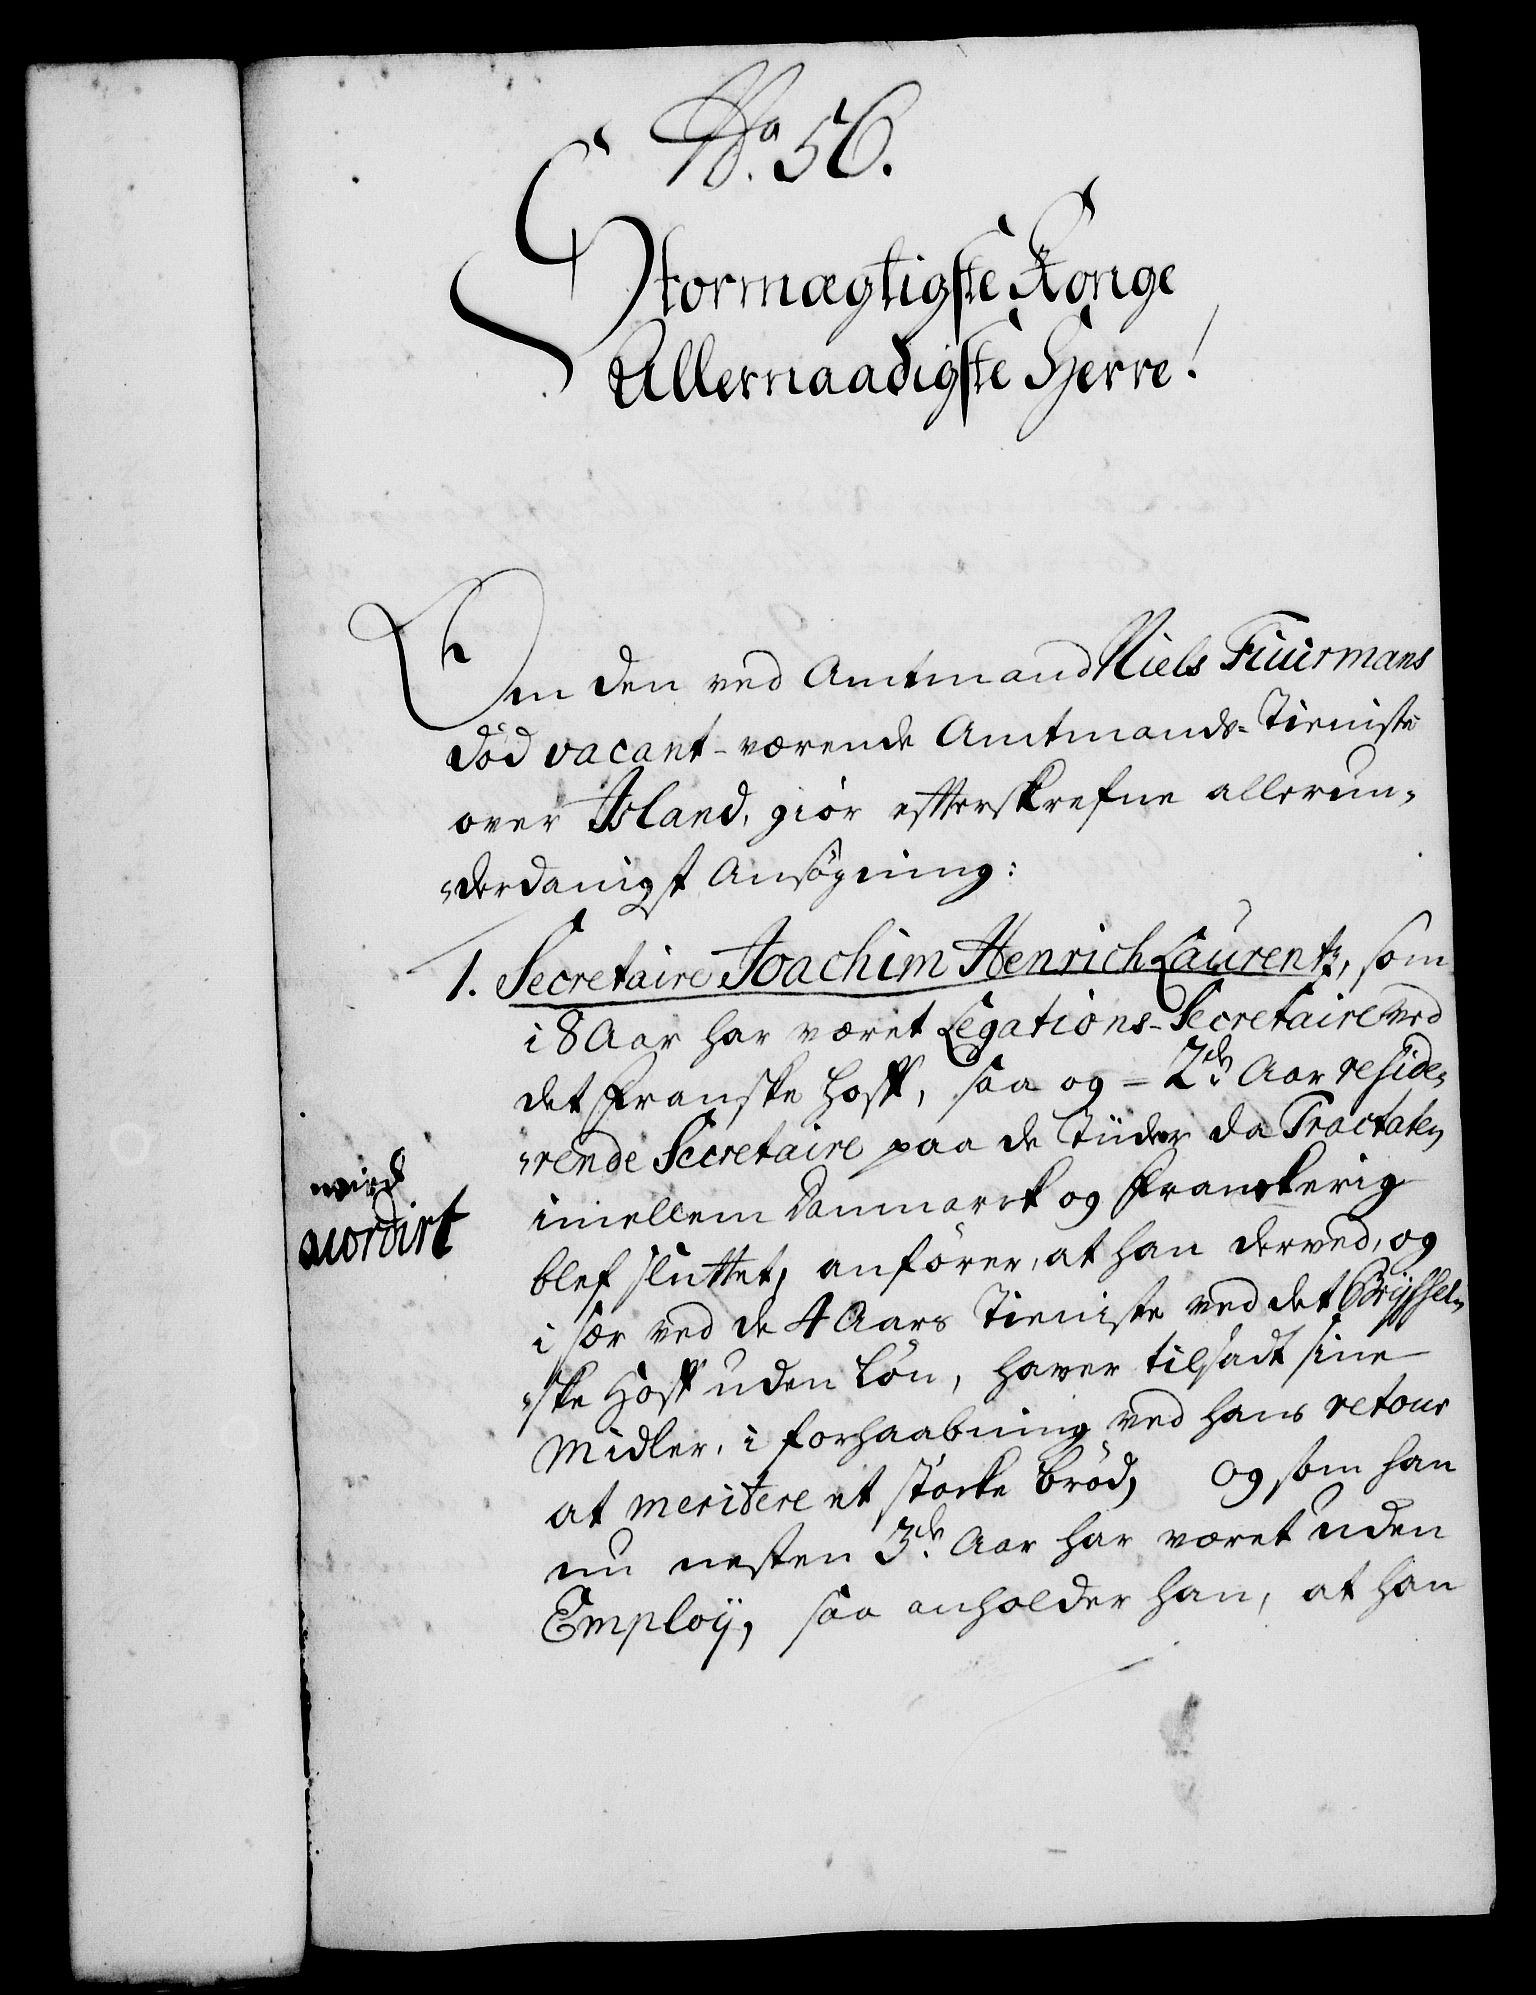 No. 56.
Stormægtigste Konge
Allernaadigste Herre!
Om den ved Amtmand Niels Fuurmans
död vacant-værende Amtmands-Tieniste
over Island, giör efterskrefne allerun-
-derdanigst Ansögning:
1. Secretaire Joachim Henrich Laurentz, som
i 8 Aar har været Legations-Secretaire ved
det Franske Hoff, saa og = 2de Aar reside-
-rende Secretaire paa de Tiider da Tractaten
imellem Danmarck og Franckerig
blef sluttet, anförer, at han derved, og
i sær ved de 4 Aars Tieniste ved det Bryssel-
-ske Hoff uden Lön, haver tilsadt sine
Midler, i forhaabning ved hans retour
at meritere et stöcke bröd, og som han
nu nesten 3de Aar har været uden
Employ, saa anholder han, at han
wird
accordirt